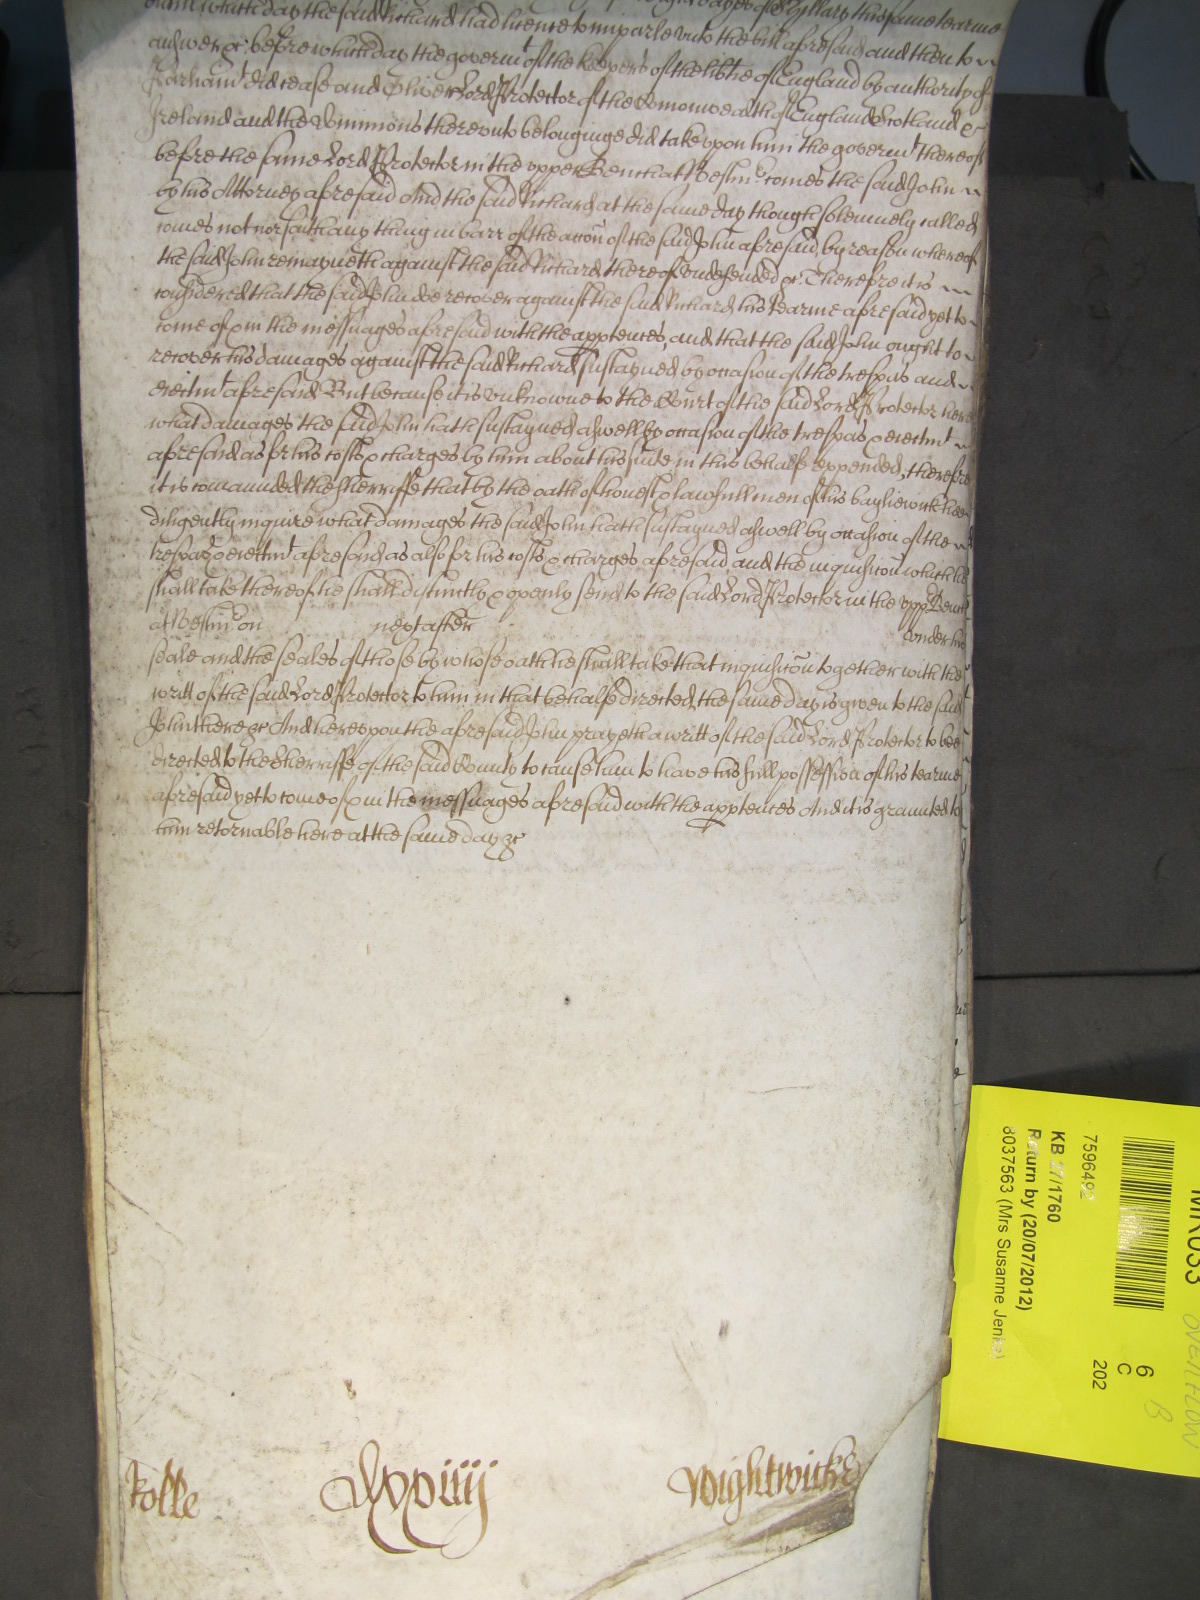 day the said Richard had licence to imparle unto the bill aforesaid and then to
answer &c. before which day the governmt of the keepers of the libtie of England by authority of
Parliamt did cease and Oliver Lord Protector of the Comonwealth of England Scotland &
Ireland and the Dominions thereunto belonginge did take upon him the governmt thereof
before the same Lord Protector in the upper Bench att Westmr comes the said John
by his Attorney aforesaid And the said Richard at the same day though solemnely called
comes not nor saith any thing in barr of the accon of the said John aforesaid by reason whereof
the said John remayneth against the said Richard thereof undefended &c. Therefore it is
considered that the said John doe recover against the said Richard his tearme aforesaid yet to
come of & in the messuages aforesaid with the apptences, and that the said John ought to
recover his damages against the said Richard sustayned by occasion of the trespas and
eiectmt aforesaid But because it is unknowne to the Court of the said Lord Protector here
what damages the said John hath sustayned aswell by occasion of the trespas & eiectmt
aforesaid as for his costs & charges by him about his suite in this behalfe expended, therefore
it is comaunded the Sherriffe that by the oath of honest & lawfull men of his bayliewick hee
diligently inquire what damages the said John hath sustayned aswell by occasion of the
trespas & eiectmt aforesaid as also for his costs & charges aforesaid, and the inquisicon which he
shall take thereof he shall distinctly & openly send to the said Lord Protector in the upp Bench
at Westmr on next after under his
seale and the seales of those by whose oath he shall take that inquisicon together with the
writt of the said Lord Protector to him in that behalfe directed, the same day is given to the said
John there &c And hereupon the aforesaid John prayeth a writt of the said Lord Protector to bee
directed to the Sherriffe of the said County to cause him to have his full possession of his tearme
aforesaid yet to come of & in the messuages aforesaid with the apptences And it is graunted to
him retornable here at the same day &c
Rolle
Wightwicke
7596492
KB 27/1760
Return by (20/07/2012)
8037563 (Mrs Susanne Jenks)
6
C
202
OVERFLOW
B